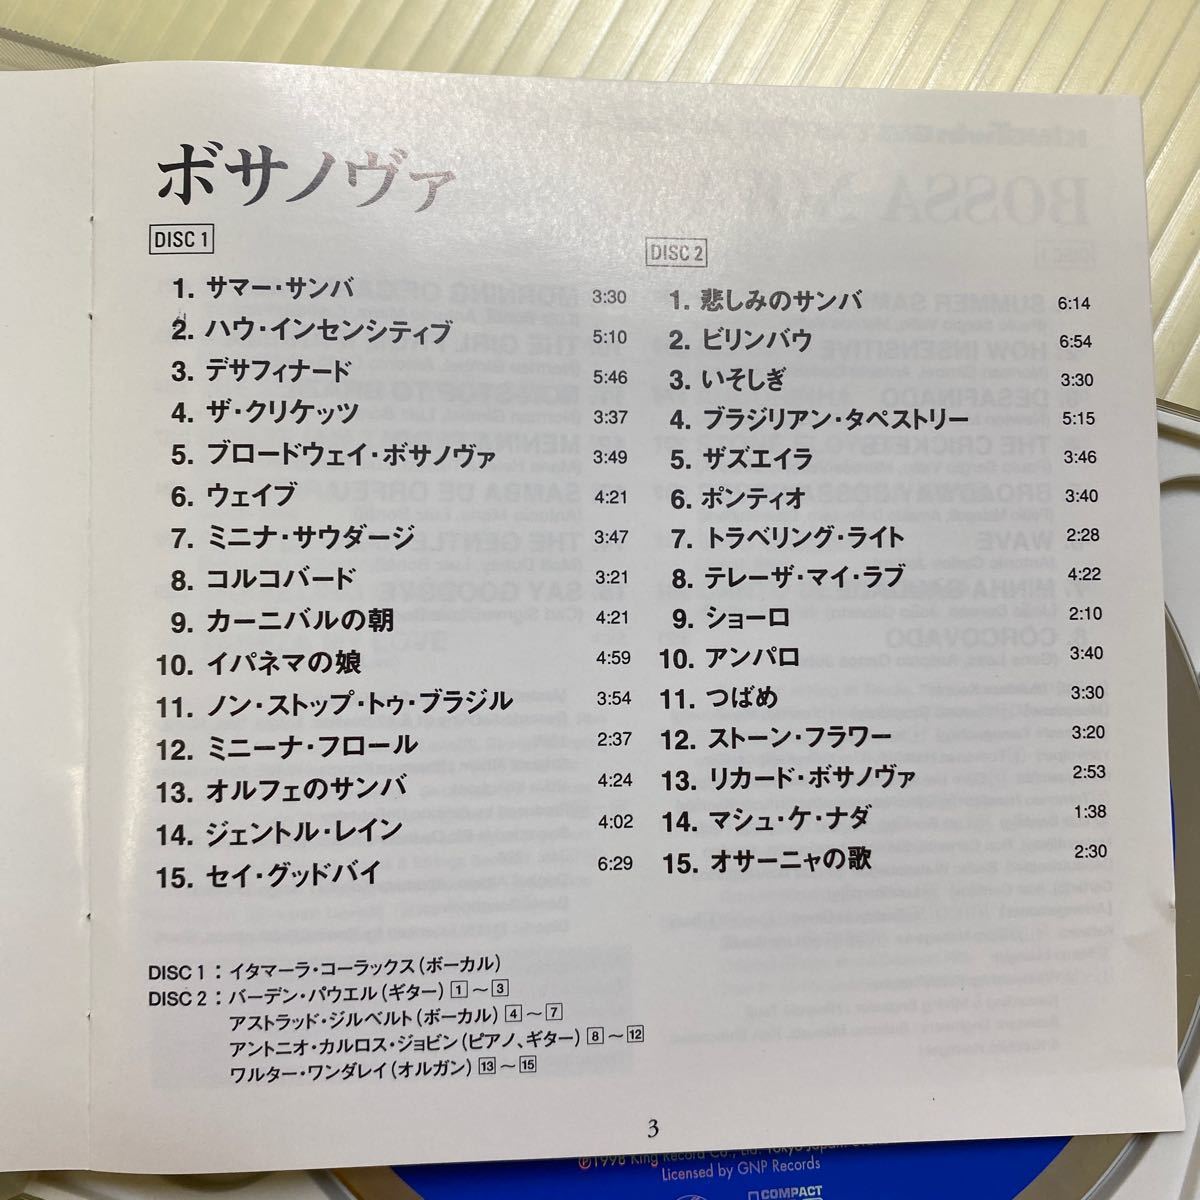 ボサノヴァ
DISC 1
1. サマー・サンバ 3:30
2. ハウ・インセンシティブ 5:10
3. デサフィナード 5:46
4. ザ・クリケッツ 3:37
5. ブロードウェイ・ボサノヴァ 3:49
6. ウェイブ 4:21
7. ミニナ・サウダージ 3:47
8. コルコバード 3:21
9. カーニバルの朝 4:21
10. イパネマの娘 4:59
11. ノン・ストップ・トゥ・ブラジル 3:54
12. ミニーナ・フロール 2:37
13. オルフェのサンバ 4:24
14. ジェントル・レイン 4:02
15. セイ・グッドバイ 6:29
DISC 2
1. 悲しみのサンバ 6:14
2. ビリンバウ 6:54
3. いそしぎ 3:30
4. ブラジリアン・タペストリー 5:15
5. ザズエイラ 3:46
6. ポンティオ 3:40
7. トラベリング・ライト 2:28
8. テレーザ・マイ・ラブ 4:22
9. ショーロ 2:10
10. アンパロ 3:40
11. つばめ 3:30
12. ストーン・フラワー 3:20
13. リカード・ボサノヴァ 2:53
14. マシュ・ケ・ナダ 1:38
15. オサーニャの歌 2:30
DISC 1：イタマーラ・コーラックス(ボーカル)
DISC 2：バーデン・パウエル(ギター) 1～3
アストラッド・ジルベルト(ボーカル) 4～7
アントニオ・カルロス・ジョビン(ピアノ、ギター) 8～12
ワルター・ワンダレイ(オルガン) 13～15
3
℗1998 King Record Co., Ltd. Tokyo Japan.
Licensed by GNP Records
COMPACT